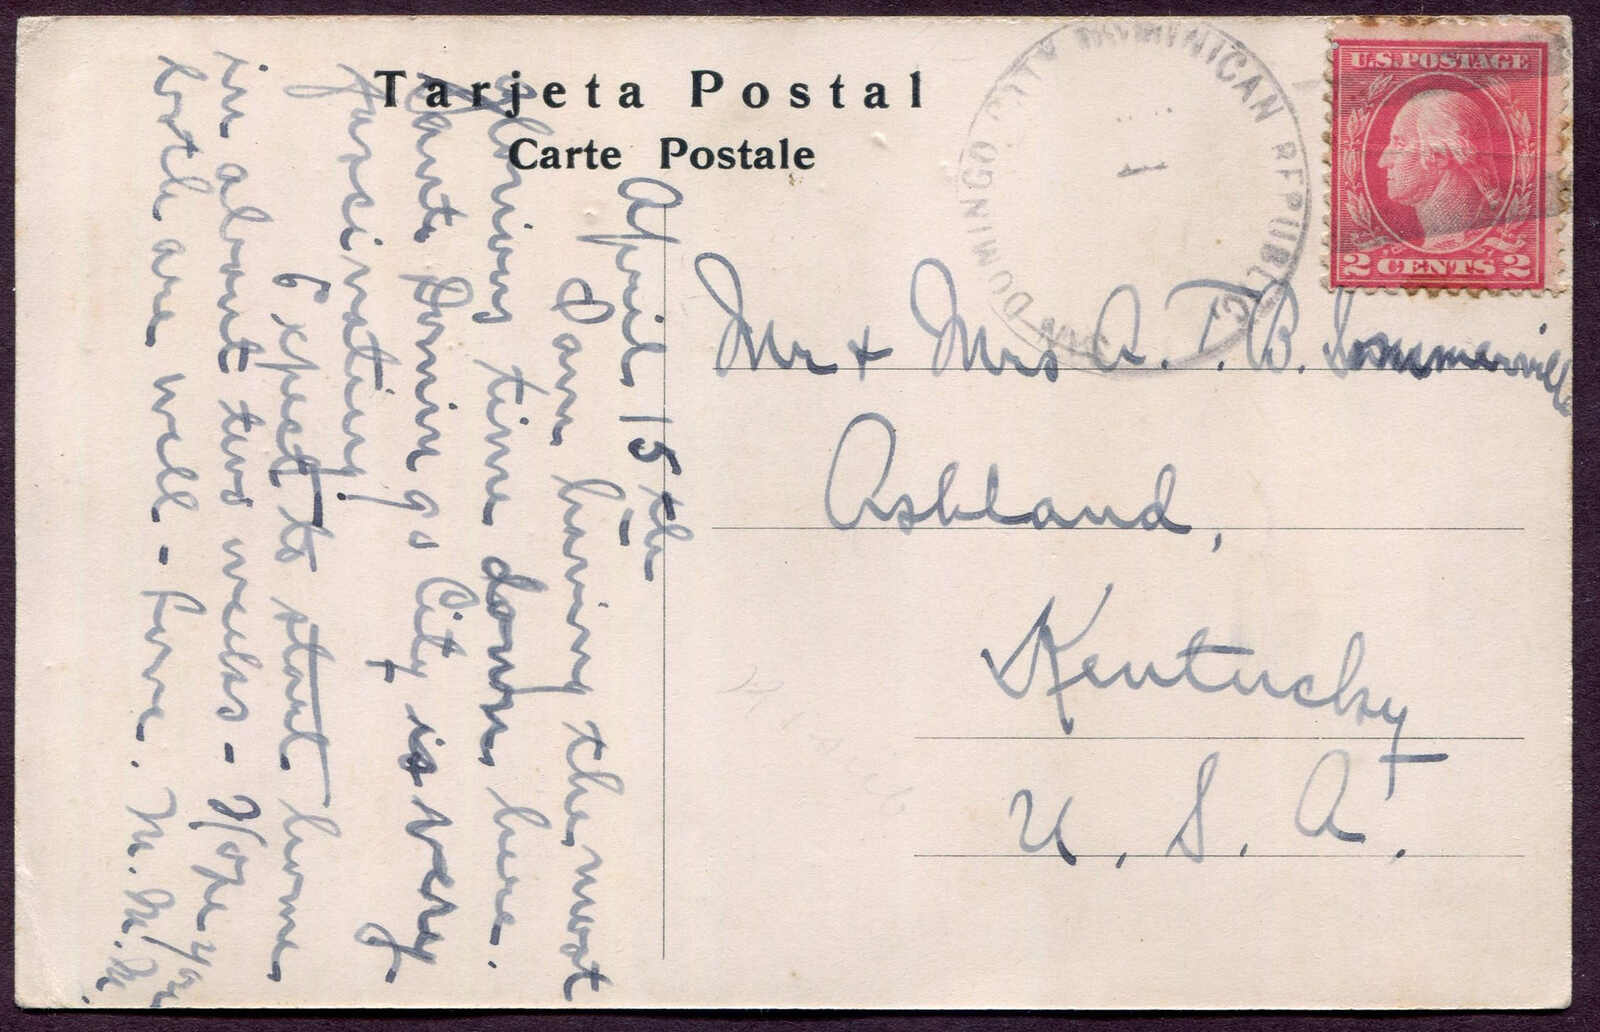 Tarjeta Postal
Carte Postale
SANTO DOMINGO CITY DOMINICAN REPUBLIC
1
U.S. POSTAGE
2 CENTS 2
April 15th
I am having the most
glorious time down here.
Santo Domingo City is very
fascinating.
Expect to start home
in about two weeks - Hope you
both are well - Love. M. M. M.
Mr + Mrs A. T. B. Sommerville
Ashland,
Kentucky
U. S. A.